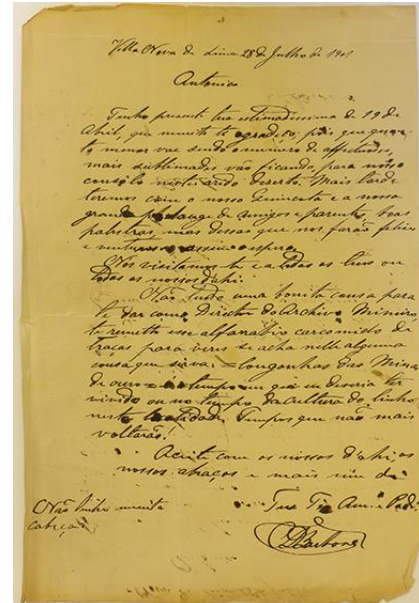 Villa Nova de Lima 28 de Julho de 1901
Antonico
Tenho presente tua estimadissima de 19 de
Abril, que muito te agradeço, pois que quan
to menor vae sendo o numero de affeiçoados,
mais sublimados vão ficando, para nosso
consôlo neste arido deserto. Mais tarde
teremos com o nosso e a nossa
grande de amigos e parentes, boas
palestras, mas dessas que nos farão felizes
e venturosos, assim o espero.
Nos visitamos te e a todos os teus ou
todos os nossos d'ahi.
Não tendo uma bonita cousa para
te dar como Director do Archivo Mineiro,
te remetto esse alfarrabio carcomido de
traças para veres se acha nelle alguma
cousa que sirva. = Congonhas das Minas
de ouro = é o tempo em que eu deveria ter
vindo ou no tempo da cultura do linho
nesta localidade. Tempos que não mais
voltarão!
Aceite com os nossos d'ahi os
nossos abraços e mais um do
Teu Tio Amº e Padº
Não tenho muita
cabeça
Barbosa